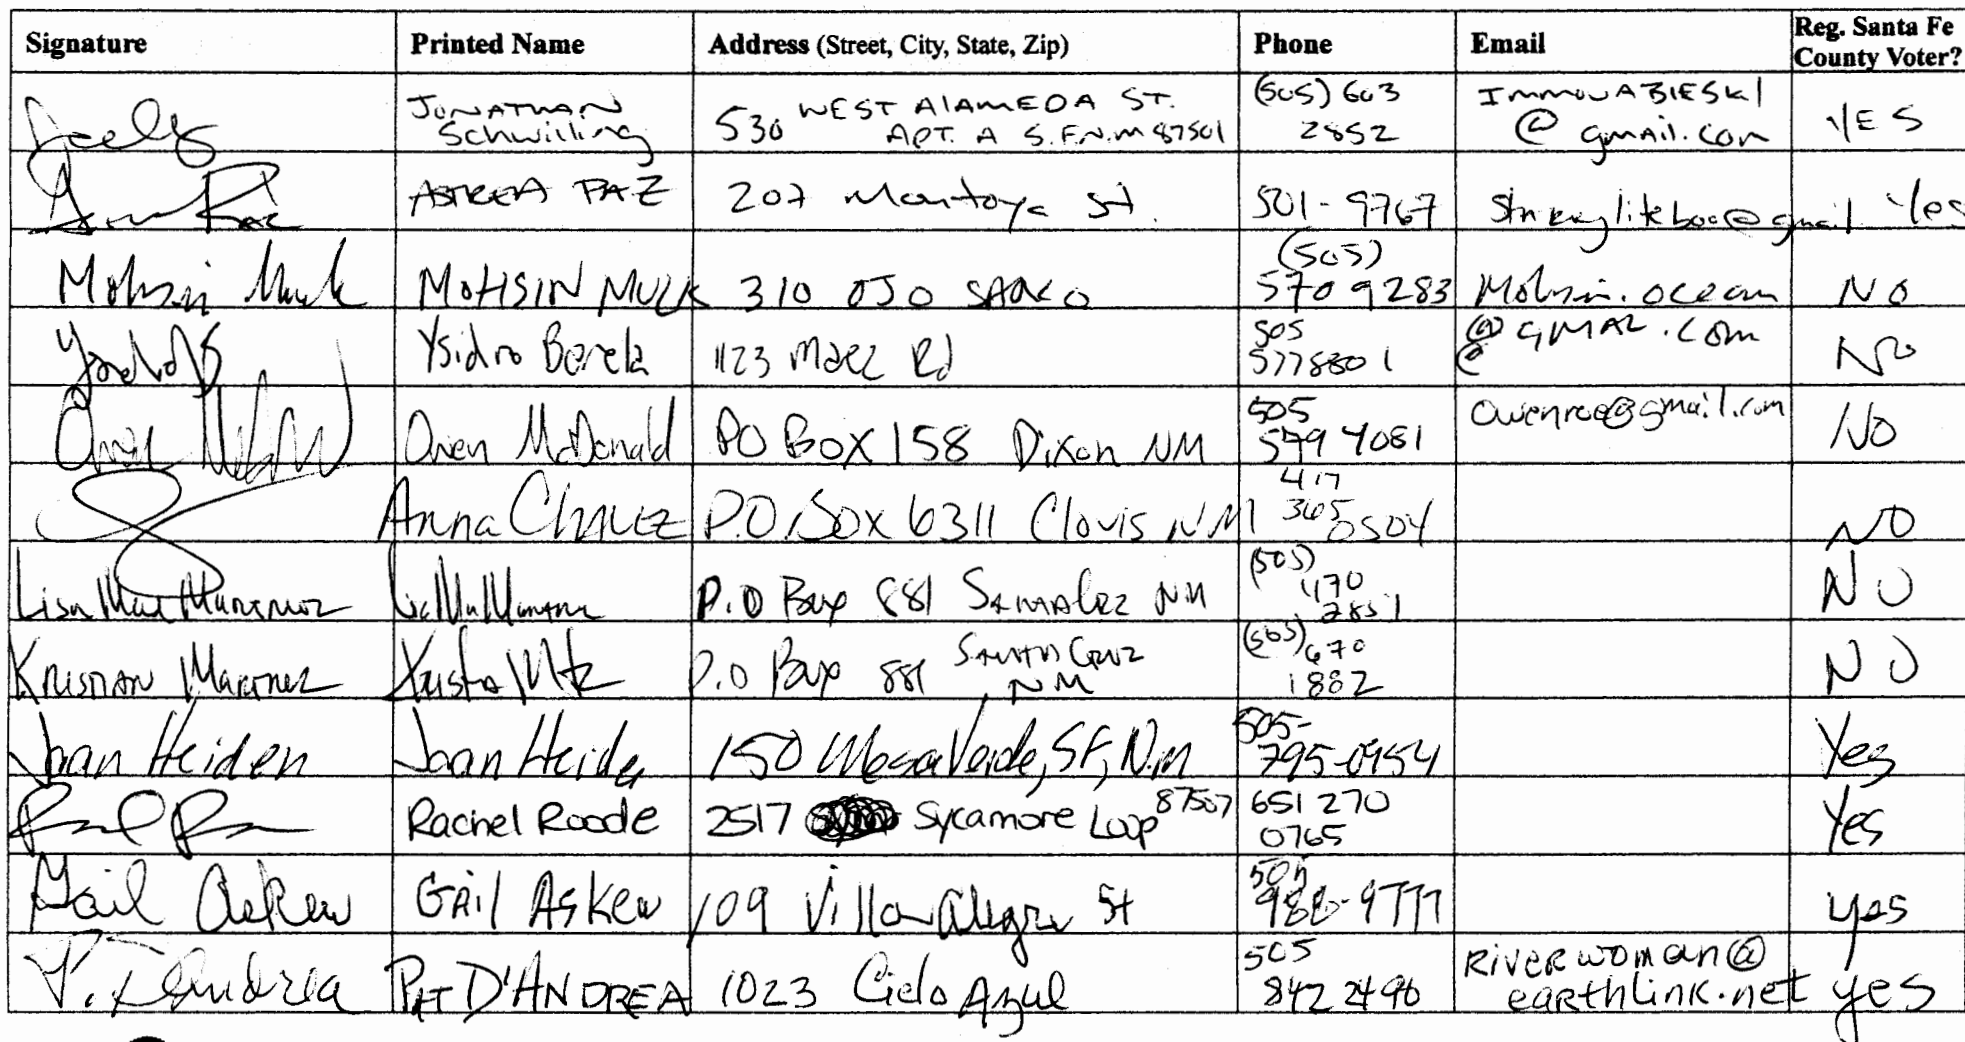 Signature Printed Name Address (Street, City, State, Zip) Phone Email Reg. Santa Fe County Voter?
JONATHAN Schwilling 530 WEST ALAMEDA ST. APT. A S.F.N.M 87501 (505) 603 2852 @ gmail.com YES
ASTREA PAZ 207 Montoya St. 501-9767 @gmail Yes
Mohsin Mulk MOHSIN MULK 310 OJO (505) 570 9283 Mohsin.ocean NO
Ysidro 1123 Maez Rd 505 5778801 @GMAL.com @ NO
Owen McDonald Owen McDonald PO Box 158 Dixon NM 505 579 4081 owenroe@gmail.com NO
Anna Chavez P.O. Box 6311 Clovis NM 417 365 0504 NO
Lisa P.O Box 881 NM (505) 470 2851 NO
Kristian Martinez P.O Box 881 Santa Cruz NM (505) 670 1882 NO
Joan Heiden Joan Heiden 150 Mesa Verde, SF, N.M 505-795-0954 Yes
Rachel Roode 2517 Sycamore Loop 87507 651 270 0765 Yes
Gail Askew Gail Askew 109 Villa Alegre St 505 988-9777 yes
P. D'Andrea PAT D'ANDREA 1023 Cielo Azul 505 842 2496 RiverwomAn@ earthlink.net yes